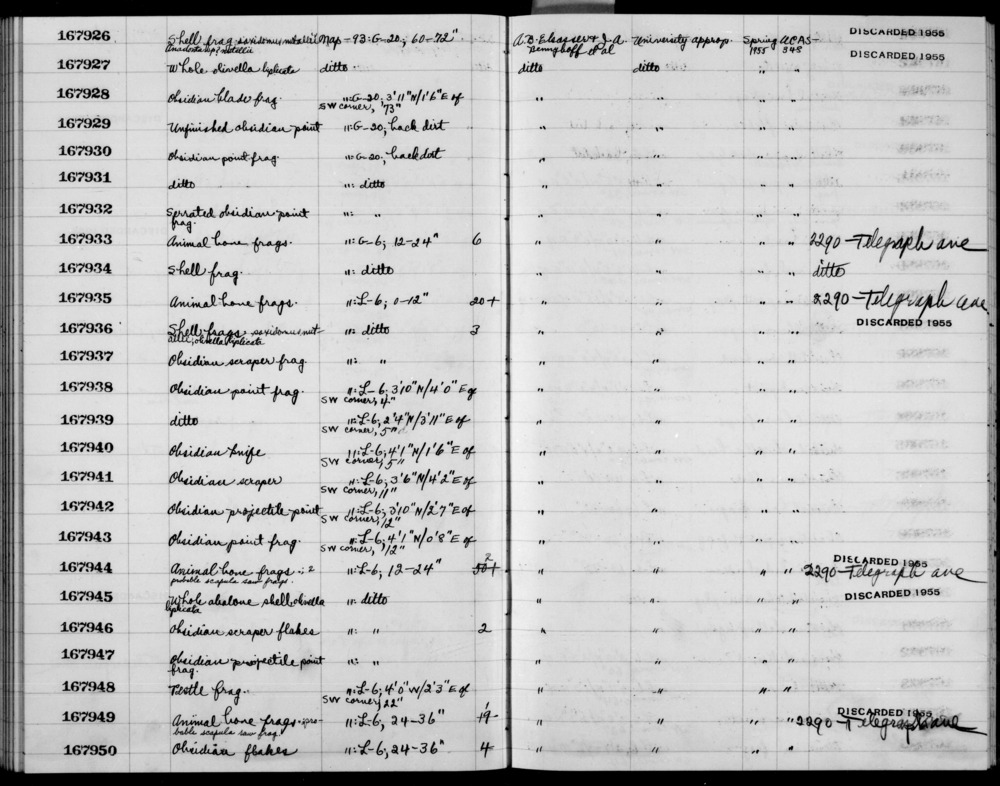 167926 Shell frag. saxidomus nuttallii Nap-93:G-20; 60-72" A.B. Elsasser & J.A. University approp. Spring UCAS- DISCARDED 1955
Anadonta sp? nuttallii Bennyhoff et al 1955 348
167927 Whole olivella biplicata ditto ditto ditto " " DISCARDED 1955
167928 Obsidian blade frag. ":G-20; 3'11"N/1'6"E of " " " "
SW corner, 73"
167929 Unfinished obsidian point ":G-20; back dirt " " " "
167930 Obsidian point frag. ":G-20; back dirt " " " "
167931 ditto ": ditto " " " "
167932 Serrated obsidian point ": " " " " "
frag.
167933 Animal bone frags. ":G-6; 12-24" 6 " " " " 2290-Telegraph ave
167934 Shell frag. ": ditto " " " " ditto
167935 Animal bone frags. ":L-6; 0-12" 20+ " " " " 2290-Telegraph ave.
167936 Shell frags. saxidomus nut- ": ditto 3 " " " " DISCARDED 1955
tallii; olivella biplicata
167937 Obsidian scraper frag. ": " " " " "
167938 Obsidian point frag. ":L-6; 3'10"N/4'0"E of " " " "
SW corner; 4"
167939 ditto ":L-6; 2'4"N/3'11"E of " " " "
SW corner, 5"
167940 Obsidian knife ":L-6; 4'1"N/1'6"E of " " " "
SW corner, 5"
167941 Obsidian scraper ":L-6; 3'6"N/4'2"E of " " " "
SW corner, 11"
167942 Obsidian projectile point ":L-6; 3'10"N/2'7"E of " " " "
SW corner; 12"
167943 Obsidian point frag. ":L-6; 4'1"N/0'8"E of " " " "
SW corner, 12"
167944 Animal bone frags.; 2 ":L-6; 12-24" 50+ 2 " " " " DISCARDED 1955
probable scapula saw frags. 2290-Telegraph ave
167945 Whole abalone shell; olivella ": ditto " " " " DISCARDED 1955
biplicata
167946 Obsidian scraper flakes ": " 2 " " " "
167947 Obsidian projectile point ": " " " " "
frag.
167948 Pestle frag. ":L-6; 4'0"W/2'3"E of " " " "
SW corner; 22"
167949 Animal bone frags. pro- ":L-6; 24-36" 19 1 " " " " DISCARDED 1955
bable scapula saw frag. 2290-Telegraph ave
167950 Obsidian flakes ":L-6; 24-36" 4 " " " "